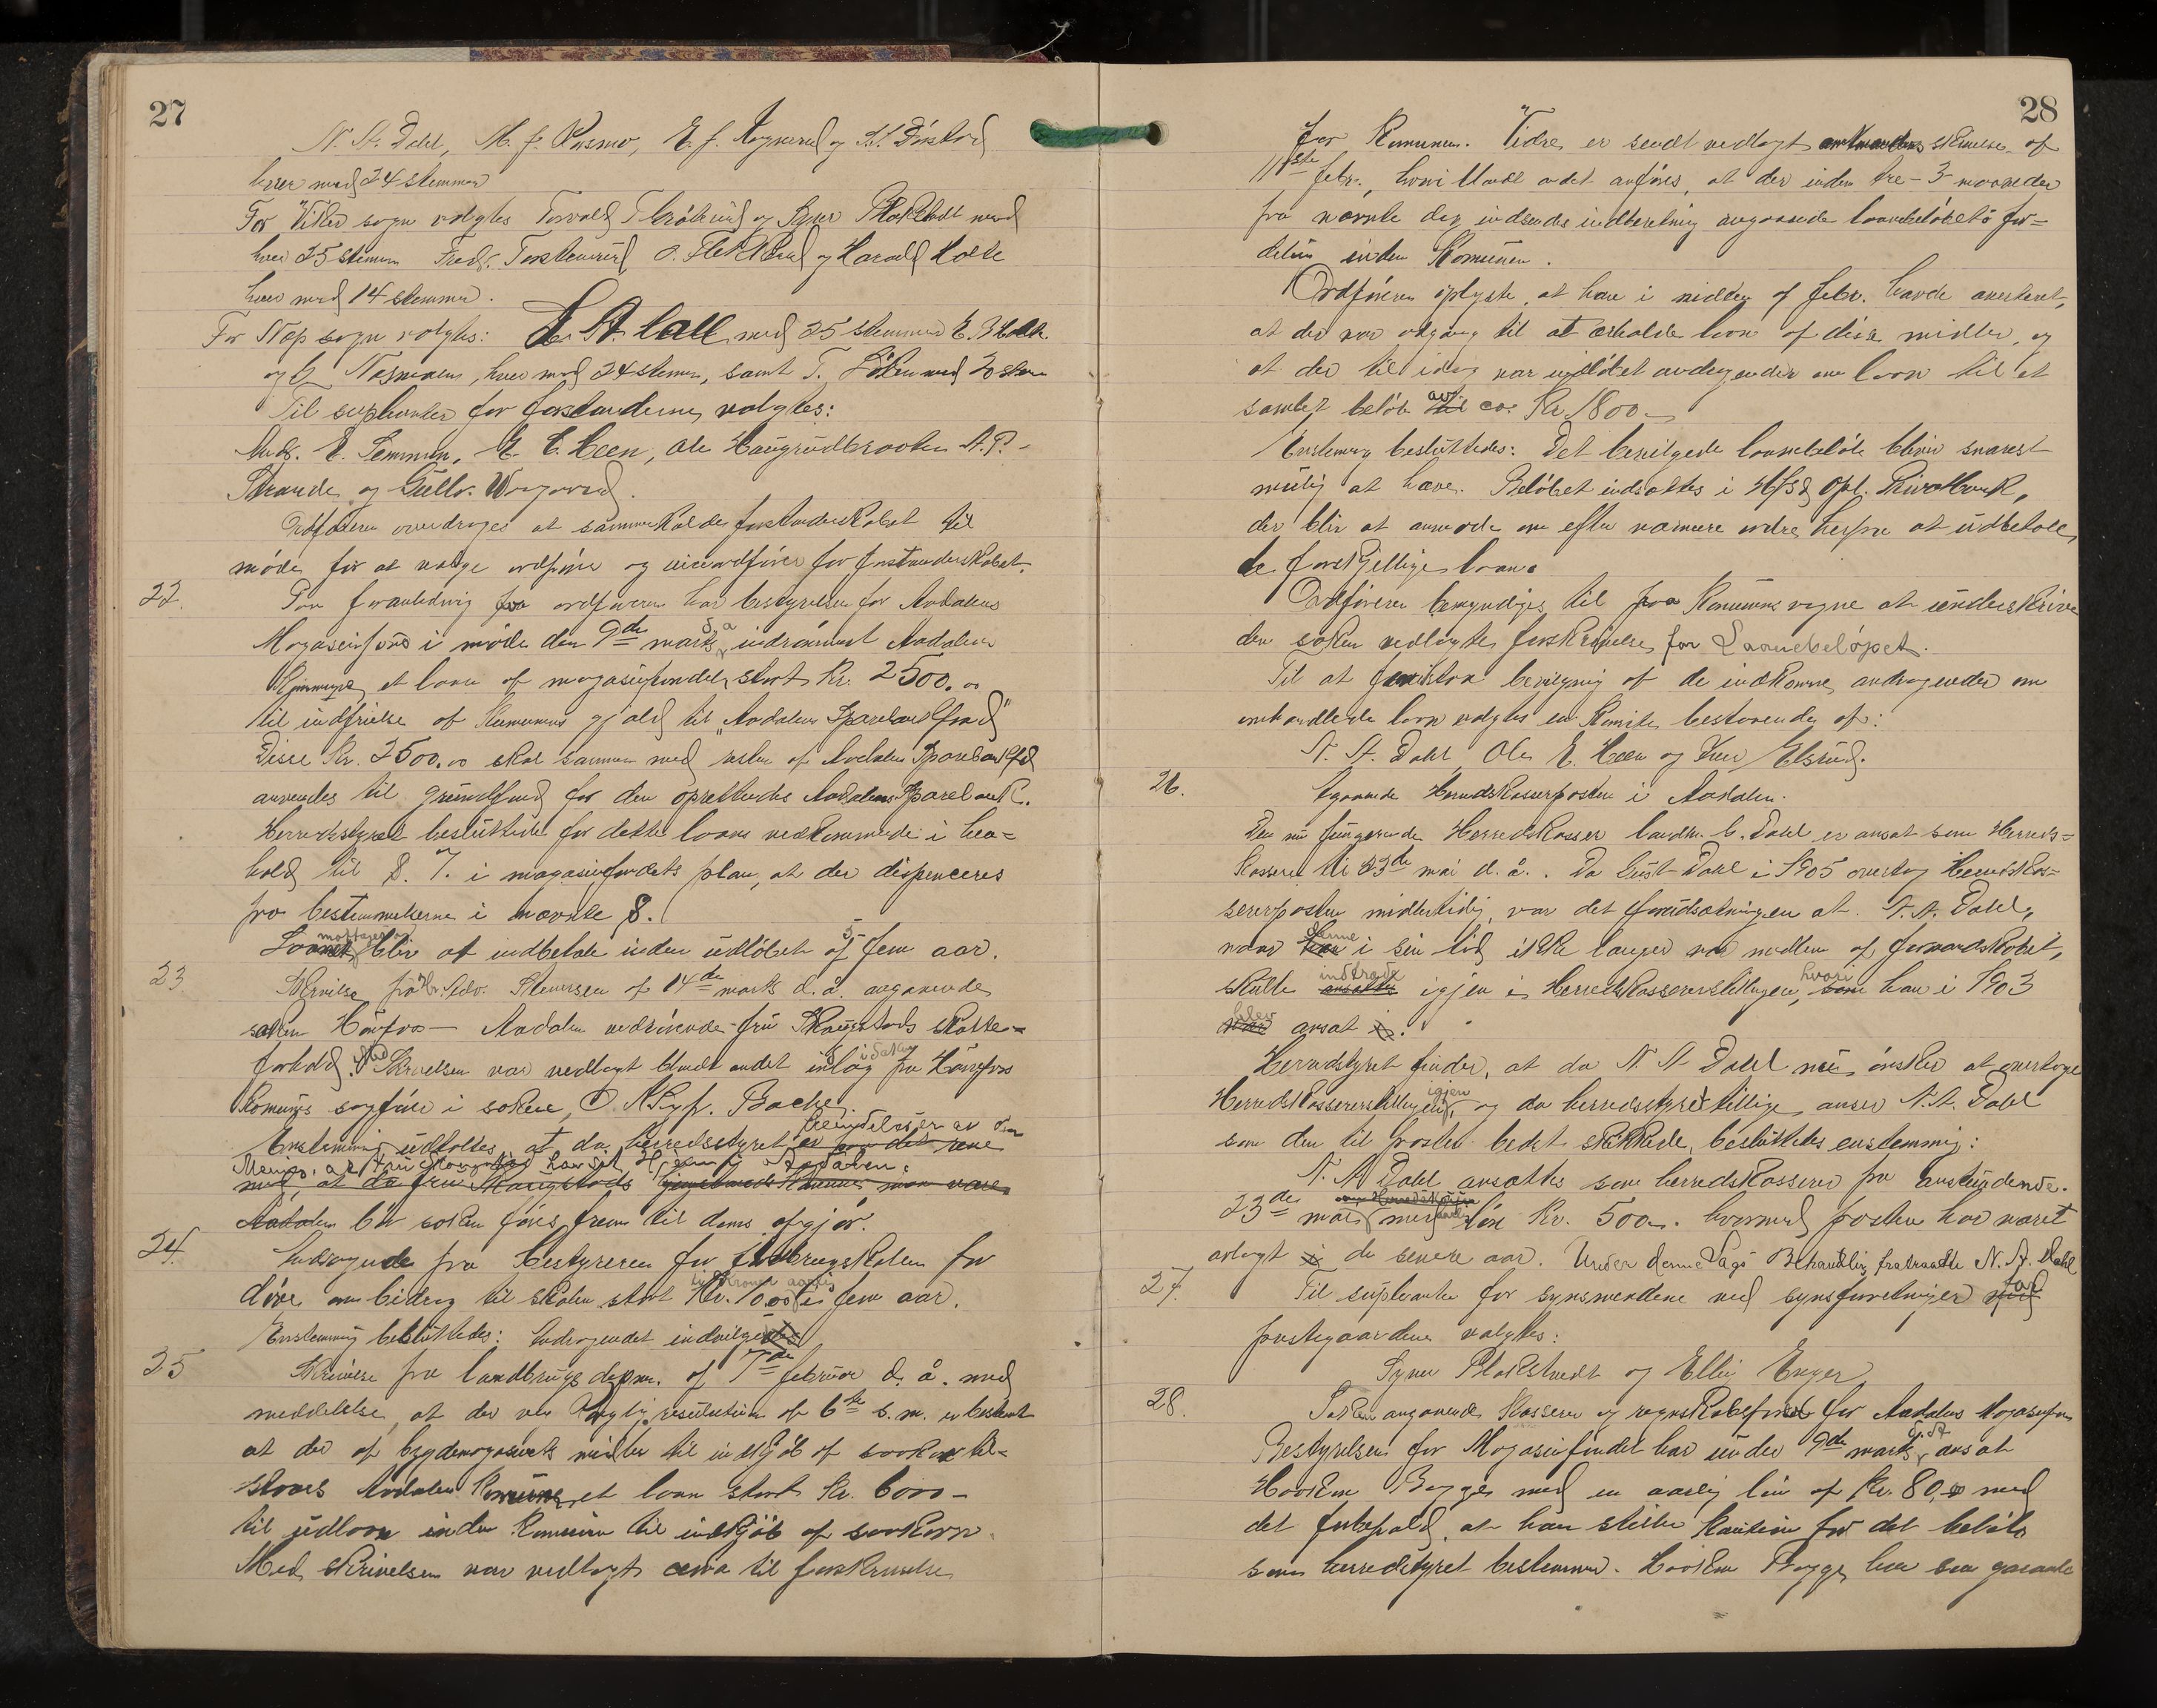 27
N. A. Dahl, M. J. Rasmo, E. J. Rognerud og
hver med 24 stemmer
For Viker sogn valgtes Torvald og Syver Plakstedt med
hver 25 stemmer Fredr. Torsteinsrud O. Flekkerud og Harald Holte
hver med 14 stemmer.
For Næs sogn valgtes: Hall med 25 stemmer E. Holte
og Næsmoen, hver med 24 stemmer, samt T. med 20 stem
Til suplianter for forstanderne valgtes:
Ands. E. Semmen, E. E. Heen, Ole Haugrudbraaten A. P.
Strande og Gullv.
Ordføreren overdroges at sammenkalde forstanderskabet til
møde for at vælge ordfører og viceordfører for forstanderskabet.
22. Paa foranledning fra ordføreren har bestyrelsen for Aadalens
Magasinfond i møde den 9de marts d. a. indrømmet Aadalens
Kommune et laan af magasinfondet stort Kr. 2500.00
til indfrielse af Kommunens gjæld til "Aadalens Sparebankfond"
Disse Kr. 2500.00 skal sammen med resten af Aadalens Sparebankfd
anvendes til grundfond for den oprettendes Aadalens Sparebank.
Herredsstyret besluttede for dette laans vedkommende i hen-
hold til §. 7. i magasinfondets plan, at der dispenceres
fra bestemmelserne i nævnte §.
Laanet blir at indbetale inden udløbet af 5 fem aar.
23. Skrivelse fra Hr. Adv. Steensen af 14de marts d. å. angaaende
saken Hønefos - Aadalen vedrørende fru Skougstads skatte-
forhold. Med Skrivelsen var vedlagt blandt andet indlæg i saken fra Hønefos
Komunes sagfører i sakene, O. R. Sagf. Bache.
Enstemmig udtaltes at da herredsstyret fremdeles er av den
Mening, at fru Skougstad har sit Hjem i Aadalen,
bør saken føres frem til doms afgjør.
24. Andragende fra bestyreren for Arbeidsskolen for
døve om bidrag til skolen stort Kr. 10.00 ti Kroner aarlig i fem aar.
Enstemmig besluttedes: Andragendet indvilges
25 Skrivelse fra landbrugsdepm. af 7de februar d. å. med
meddelelse, at der ved Kongelig resulution af 6te s. m. er bestemt
at der af bygdemagasinets midler til indkjøb af saakorn til-
staaes Aadalens Komune et laan stort Kr. 6000 -
til udlaan inden Komunen til indkjøb af saakorn.
Med skrivelsen var vedlagt til forskrivelse
28
for Komunen. Videre er sendt vedlagt amtmandens skrivelse af
11te febr., hvori blandt andet anføres, at der inden tre - 3 maaneder
fra nævnte dag indsendes indberetning angaaende laanebeløbets for-
deling inden Komunen.
Ordføreren oplyste, at han i midten af febr. havde averteret,
at der var adgang til at erholde laan af disse midler, og
at der til idag var indløbet andragender om laan til et
samlet beløb av ca. Kr. 1800 -
Enstemmig besluttedes: Det bevilgede laanebeløb blir snarest
mulig at hæve. Beløbet indsættes i Hfs & Opl. Privatbank,
der blir at anmode om efter nærmere ordre herfra at udbetale
de forskjellige laan.
Ordføreren bemyndiges til paa Komunens vegne at underskrive
den saken vedlagte forskrivelse for Laanebeløpet.
Til at foreta bevilgning af de indkomne andragender om
omhandlede laan valgtes en Komite bestaaende af:
N. A. Dahl, Ole E. Heen og Iver Elsrud.
26. Agaaende Herredskasserposten i Aadalen.
Den nu fungerende Herredskasser landh. C. Dahl er ansat som Herreds-
kasserer til 23de mai d. å. Da Dahl i 1905 overtog Herredskas-
sererposten midlertidig, var det forudsætningen at N. A. Dahl,
naar denne i sin tid ikke længer var medlem af formandskabet,
skulle indtræde igjen i Herredskassererstillingen, hvori han i 1903
blev ansat.
Herredsstyret finder, at da N. A. Dahl nu ønsker at overtage
Herredskassererstillingen igjen, og da herredsstyret tillige anser N. A. Dahl
som den til posten bedst skikkede, besluttedes enstemmig:
N. A. Dahl ansættes som herredskasserer fra anstundende
23de mai med løn Kr. 500. hvormed posten har været
avlagt i de senere aar. Under denne Sags Behandling fratraadte N. A. Dahl
27. Til suplianter for synsmændene ved synsforretninger for
prestegaardene valgtes:
Syver Plakstedt og Elling Enger
28. Saken angaaende Kasserer og regnskabsfører for Aadalens Magasinfon
Bestyrelsen for Magasinfondet har under 9de marts sidst ansat
Haakon Bogge med en aarlig løn af Kr. 80.00 med
det forbehold, at han stiller kaution for det beløb
som herredsstyret bestemmer. Haakon Bogge har som garanti